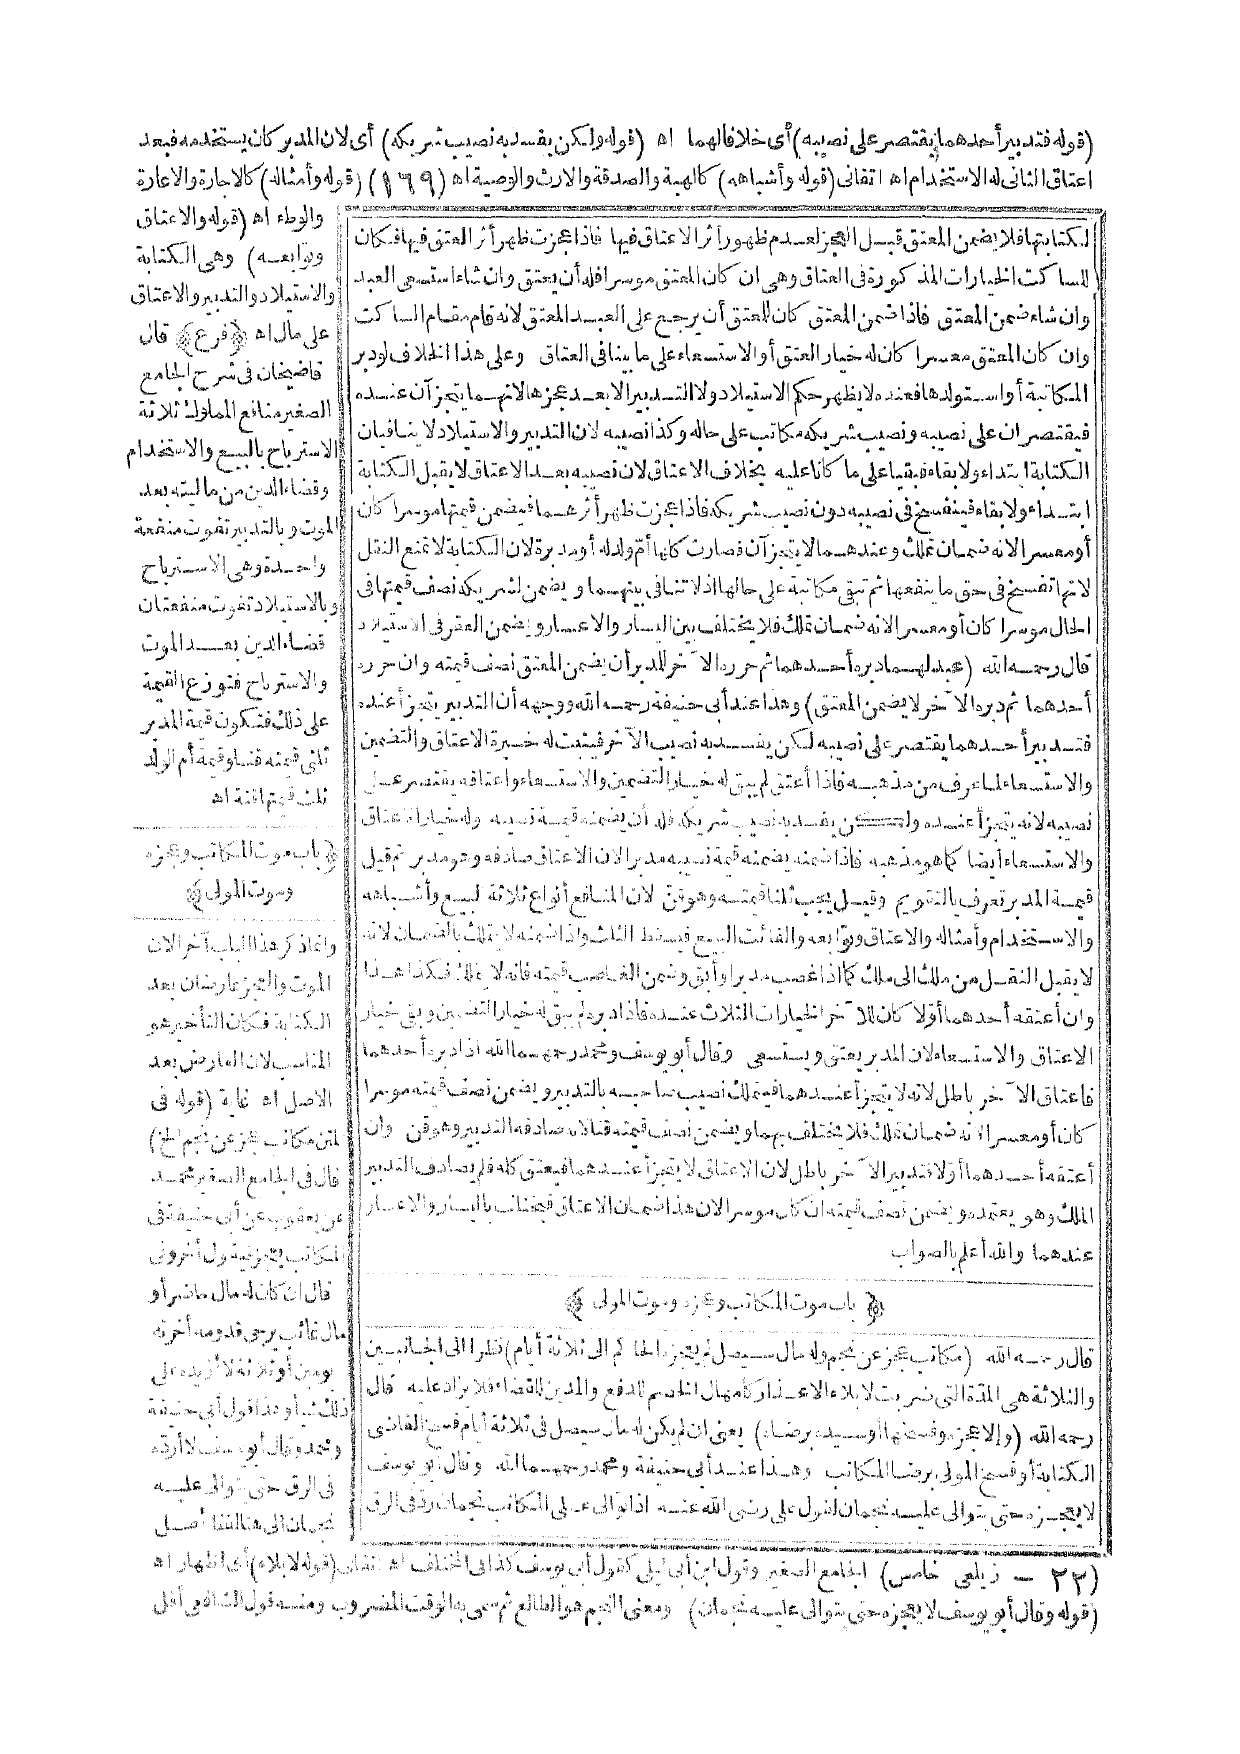 (قوله فتدبير أحدهما يقتصر على نصيبه) أى خلافا لهما اه (قوله ولكن يفسد به نصيب شريكه) أى لان المدبر كان يستخدمه فبعد
اعتاق الثانى له الاستخدام اه اتقانى (قوله وأشباهه) كالهبة والصدقة والارث والوصية اه (١٦٩) (قوله وأمثاله) كالاجارة والاعارة
لكتابتها فلا يضمن المعتق قبل العجز لعدم ظهور أثر الاعتاق فيها فاذا عجزت ظهر أثر العتق فيها فكان
للساكت الخيارات المذكورة فى العتاق وهى ان كان المعتق موسرا فله أن يعتق وان شاء استسعى العبد
وان شاء ضمن المعتق فاذا ضمن المعتق كان للمعتق أن يرجع على العبد المعتق لانه قام مقام الساكت
وان كان المعتق معسرا كان له خيار العتق أو الاستسعاء على ما بينا فى العتاق وعلى هذا الخلاف لو دبر
المكاتبة أو استولدها فعنده لا يظهر حكم الاستيلاد ولا التدبير الا بعد عجزها لانهما يتجزآن عنده
فيقتصران على نصيبه ونصيب شريكه مكاتب على حاله وكذا نصيبه لان التدبير والاستيلاد لا ينافيان
الكتابة ابتداء ولا بقاء فيبقيا على ما كانا عليه بخلاف الاعتاق لان نصيبه بعد الاعتاق لا يقبل الكتابة
ابتداء ولا بقاء فينفسخ فى نصيبه دون نصيب شريكه فاذا عجزت ظهر أثرهما فيضمن قيمتها موسرا كان
أو معسرا لانه ضمان تملك وعندهما لا يتجزآن فصارت كلها أم ولد له أو مدبرة لان الكتابة لا تمنع النقل
لانها تفسخ فى حق ما ينفعها ثم تبقى مكاتبة على حالها اذ لا تنافى بينهما ويضمن لشريكه نصف قيمتها فى
الحال موسرا كان أو معسرا لانه ضمان تملك فلا يختلف بين اليسار والاعسار ويضمن العقر فى الاستيلاد
قال رحمه الله (عبد لهما دبره أحدهما ثم حرره الآخر للمدبر أن يضمن المعتق نصف قيمته وان حرره
أحدهما ثم دبره الآخر لا يضمن المعتق) وهذا عند أبى حنيفة رحمه الله ووجهه أن التدبير يتجزأ عنده
فتدبير أحدهما يقتصر على نصيبه لكن يفسد به نصيب الآخر فيثبت له خيرة الاعتاق والتضمين
والاستسعاء لما عرف من مذهبه فاذا أعتق لم يبق له خيار التضمين والاستسعاء واعتاقه يقتصر على
نصيبه لانه يتجزأ عنده ولكن يفسد به نصيب شريكه فله أن يضمنه قيمة نصيبه وله خيار اعتاق
والاستسعاء أيضا كما هو مذهبه فاذا ضمنه يضمنه قيمة نصيبه مدبرا لان الاعتاق صادفه وهو مدبر ثم قيل
قيمة المدبر تعرف بالتقويم وقيل يجب ثلثا قيمته وهو قن لان المنافع أنواع ثلاثة لبيع وأشباهه
والاستخدام وأمثاله والاعتاق وتوابعه والفائت البيع فيسقط الثلث واذا ضمنه لا يتملك بالضمان لانه
لا يقبل النقل من ملك الى ملك كما اذا غصب مدبرا وأبق وضمن الغاصب قيمته فانه لا يتملكه فكذا هذا
وان أعتقه أحدهما أولا كان للآخر الخيارات الثلاث عنده فاذا دبره لم يبق له خيار التضمين وبقى خيار
الاعتاق والاستسعاء لان المدبر يعتق ويستسعى وقال أبو يوسف ومحمد رحمهما الله اذا دبره أحدهما
فاعتاق الآخر باطل لانه لا يتجزأ عندهما فيتملك نصيب صاحبه بالتدبير ويضمن نصف قيمته موسرا
كان أو معسرا لانه ضمان تملك فلا يختلف بهما ويضمن نصف قيمته قنا لانه صادفه التدبير وهو قن وان
أعتقه أحدهما أولا فتدبير الآخر باطل لان الاعتاق لا يتجزأ عندهما فيعتق كله فلم يصادف التدبير
الملك وهو يعتمده ويضمن نصف قيمته ان كان موسرا لان هذا ضمان الاعتاق فيختلف باليسار والاعسار
عندهما والله أعلم بالصواب
﴿باب موت المكاتب وعجزه وموت المولى﴾
قال رحمه الله (مكاتب عجز عن نجم وله مال سيصل لم يعجزه الحاكم الى ثلاثة أيام) نظرا الى الجانبين
والثلاثة هى المدة التى ضربت لابلاء الاعذار كامهال الخصم للدفع والمدين للقضاء فلا يزاد عليه قال
رحمه الله (والا عجزه وفسخها أو سيده برضاه) يعنى ان لم يكن له مال سيصل فى ثلاثة أيام فسخ القاضى
الكتابة أو فسخ المولى برضا المكاتب وهذا عند أبى حنيفة ومحمد رحمهما الله وقال أبو يوسف
لا يعجزه حتى يتوالى عليه نجمان لقول على رضى الله عنه اذا توالى على المكاتب نجمان رد فى الرق
والوطء اه (قوله والاعتاق
وتوابعه) وهى الكتابة
والاستيلاد والتدبير والاعتاق
على مال اه ﴿فرع﴾ قال
قاضيخان فى شرح الجامع
الصغير منافع المملوك ثلاثة
الاسترباح بالبيع والاستخدام
وقضاء الدين من ماليته بعد
الموت وبالتدبير تفوت منفعة
واحدة وهى الاسترباح
وبالاستيلاد تفوت منفعتان
قضاء الدين بعد الموت
والاسترباح فتوزع القيمة
على ذلك فتكون قيمة المدبر
ثلثى قيمته قنا وقيمة أم الولد
ثلث قيمتها قنة اه
﴿باب موت المكاتب وعجزه
وموت المولى﴾
وانما ذكر هذا الباب آخرا لان
الموت والعجز عارضان بعد
الكتابة فكان التأخير هو
المناسب لان العارض بعد
الاصل اه غاية (قوله فى
المتن مكاتب عجز عن نجم الخ)
قال فى الجامع الصغير محمد
عن يعقوب عن أبى حنيفة فى
المكاتب يعجز فيقول أخرونى
قال ان كان له مال حاضر أو
مال غائب يرجى قدومه أخرته
يومين أو ثلاثة لا أزيده على
ذلك شيأ وهذا قول أبى حنيفة
ومحمد وقال أبو يوسف لا أرده
فى الرق حتى يتوالى عليه
نجمان الى هنا لفظ أصل
(٢٢ – زيلعى خامس) الجامع الصغير وقول ابن أبى ليلى كقول أبى يوسف كذا فى المختلف اه اتقانى (قوله لابلاء) أى اظهار اه
(قوله وقال أبو يوسف لا يعجزه حتى يتوالى عليه نجمان) ومعنى النجم هو الطالع ثم سمى به الوقت المضروب ومنه قول الشافعى أقل